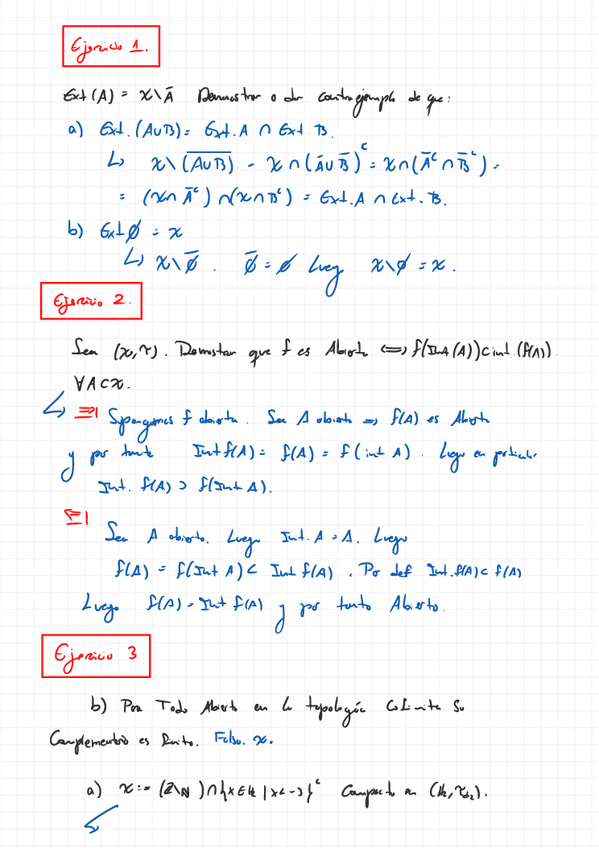 Ejercicio 1.
Ext(A) = X\Ā Demostrar o dar contraejemplo de que:
a) Ext.(A∪B) = Ext.A ∩ Ext.B.
↳ X\(\overline{A∪B}) = X∩(Ā∪B̄)ᶜ = X∩(Āᶜ∩B̄ᶜ) =
= (X∩Āᶜ)∩(X∩Bᶜ) = Ext.A ∩ Ext.B.
b) Ext ∅ = X
↳ X\∅̄. ∅̄ = ∅ Luego X\∅ = X.
Ejercicio 2.
Sea (X,τ). Demostrar que f es Abierta ⟺ f(Int(A))⊂int.(f(A))
∀A⊂X.
↳ ⇒| Supongamos f abierta. Sea A abierto ⇒ f(A) es Abierto
y por tanto Int f(A) = f(A) = f(int A). Luego en particular
Int. f(A) ⊃ f(Int A).
⇐|
Sea A abierto. Luego Int.A = A. Luego
f(A) = f(Int A) ⊂ Int f(A). Por def Int.f(A)⊂ f(A)
Luego f(A) = Int f(A) y por tanto Abierto.
Ejercicio 3
b) Para Todo Abierto en la topología Cofinita Su
Complementario es finito. Falso. X.
a) X := (Z\N)∩{x∈ℝ | x<-3}ᶜ Compacto en (ℝ, τ).
↙